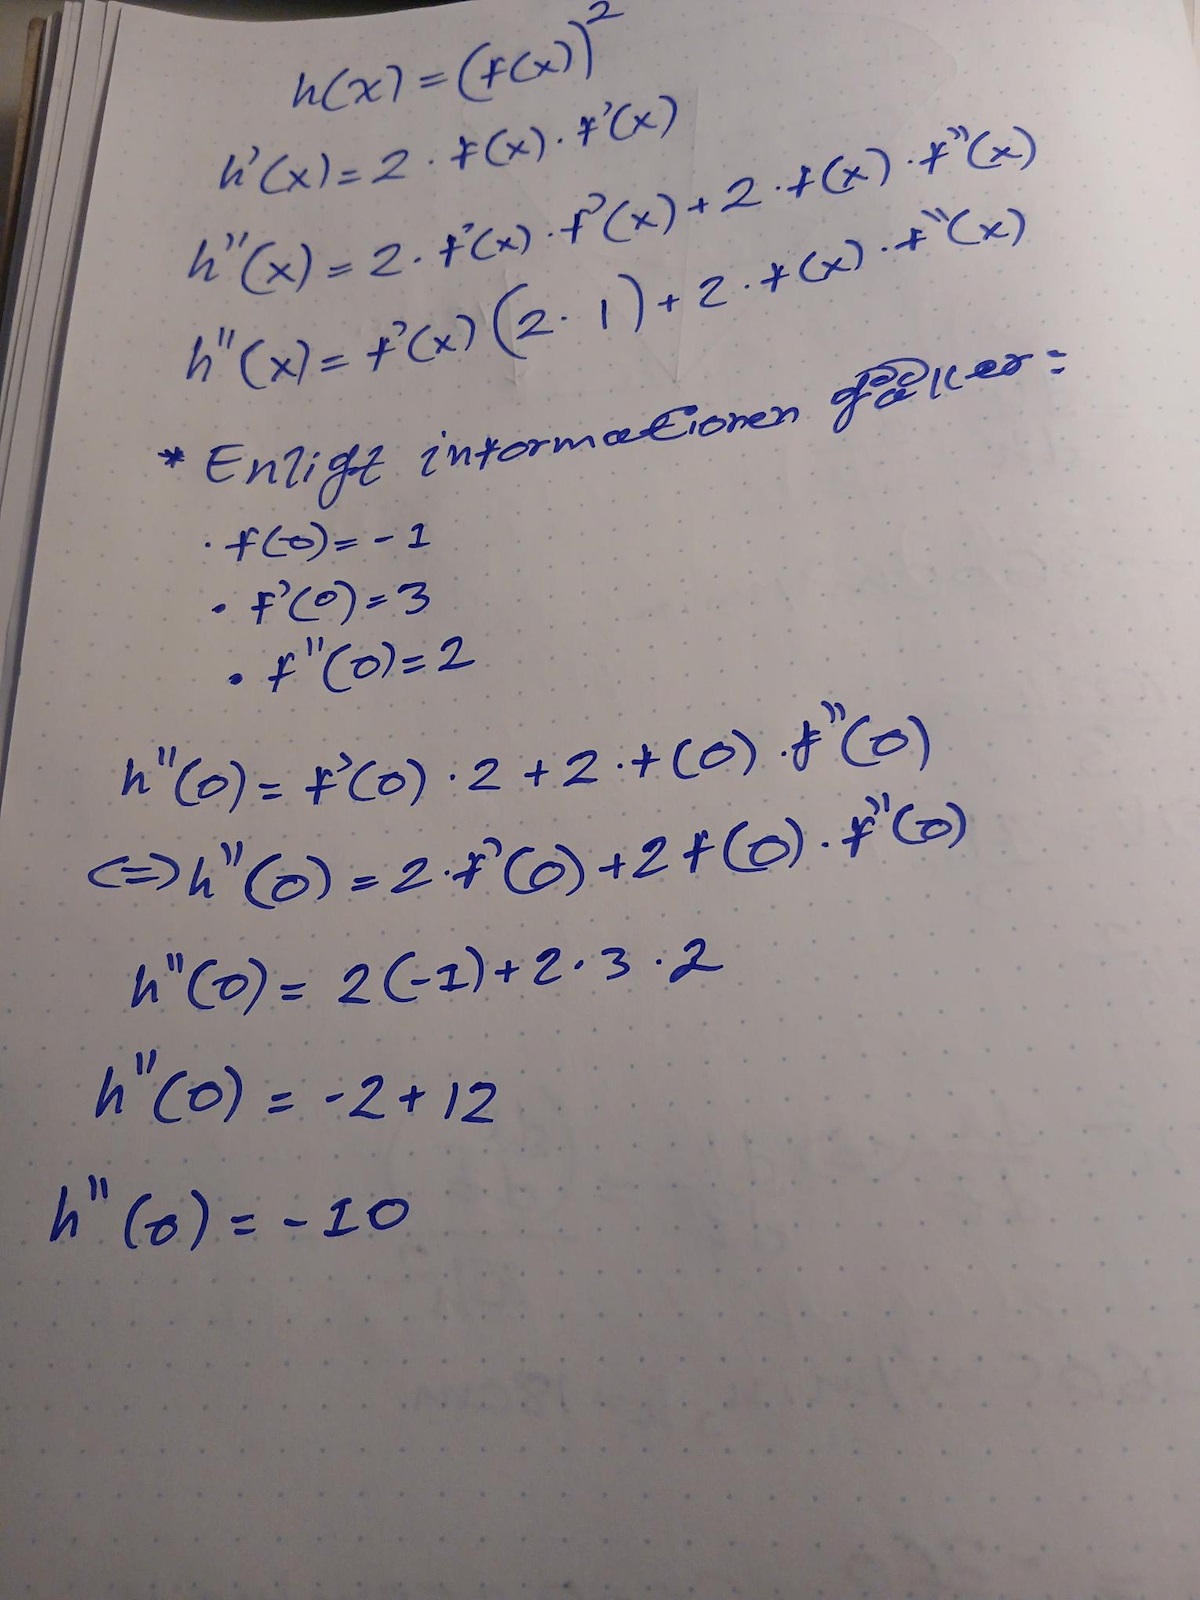 h(x) = (f(x))²
h'(x) = 2 · f(x) · f'(x)
h''(x) = 2 · f'(x) · f'(x) + 2 · f(x) · f''(x)
h''(x) = f'(x) (2 · 1) + 2 · f(x) · f''(x)
* Enligt informationen gäller:
· f(0) = -1
· f'(0) = 3
· f''(0) = 2
h''(0) = f'(0) · 2 + 2 · f(0) · f''(0)
<=> h''(0) = 2 · f'(0) + 2 f(0) · f''(0)
h''(0) = 2(-1) + 2 · 3 · 2
h''(0) = -2 + 12
h''(0) = -10